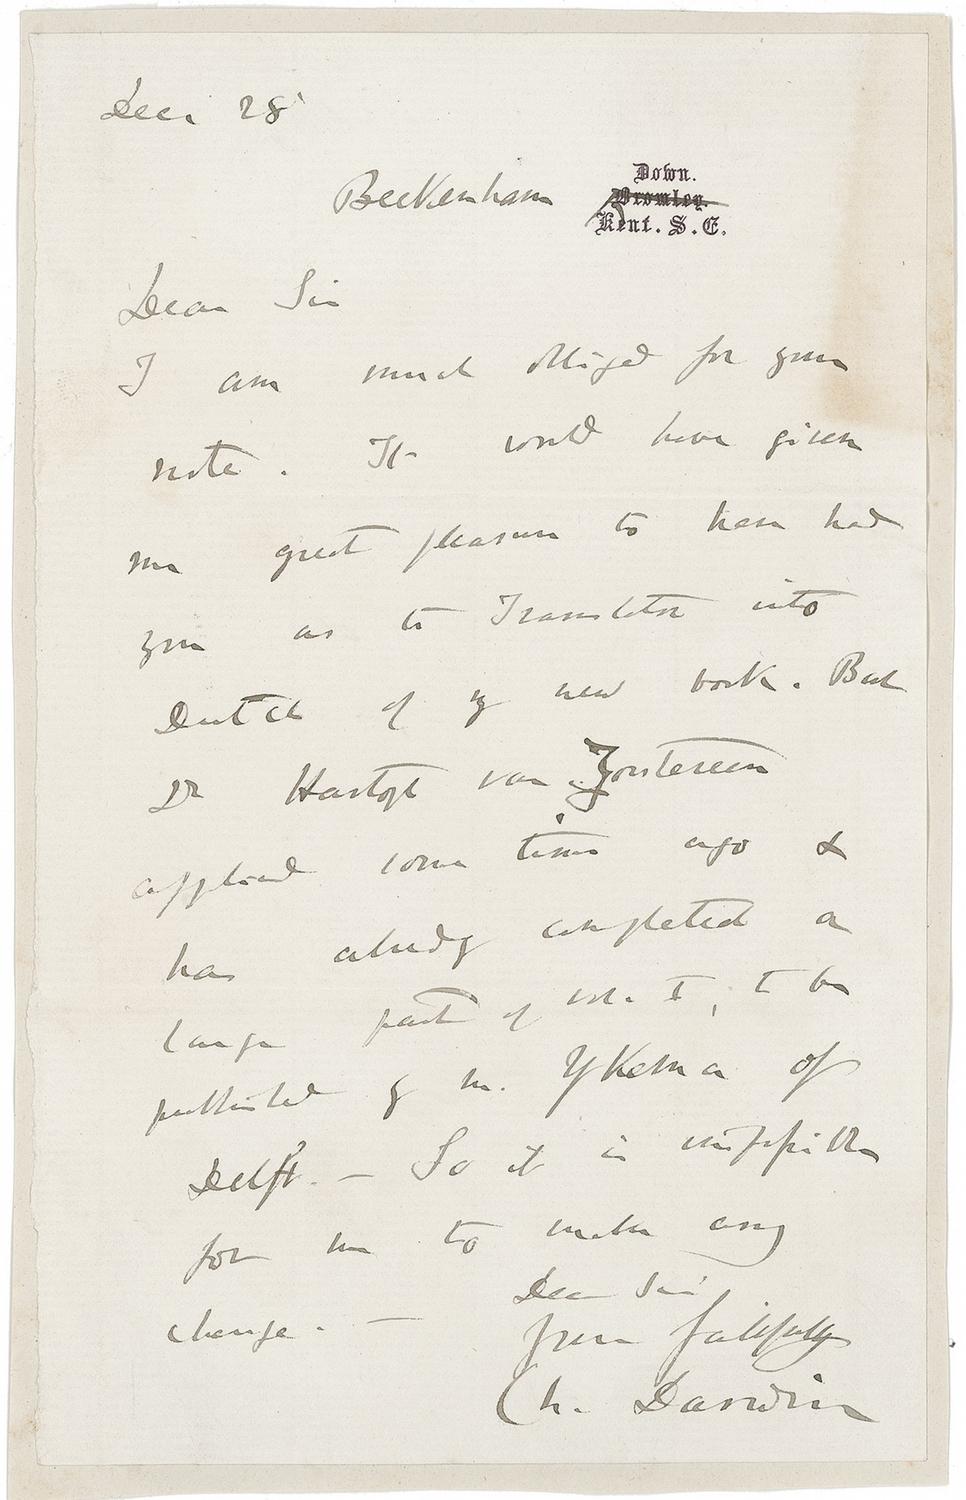 Dec. 28
Down.
Beckenham Bromley.
Kent. S. E.
Dear Sir
I am much obliged for your
note. It would have given
me great pleasure to have had
you as to Translator into
Dutch of my new work. But
Dr Hartogh van Zouteveen
applied some time ago &
has already completed a
large part of vol. I, to be
published by M. Ykema of
Delft. — So it is impossible
for me to make any
change. —
Dear Sir
Yours faithfully
Ch. Darwin